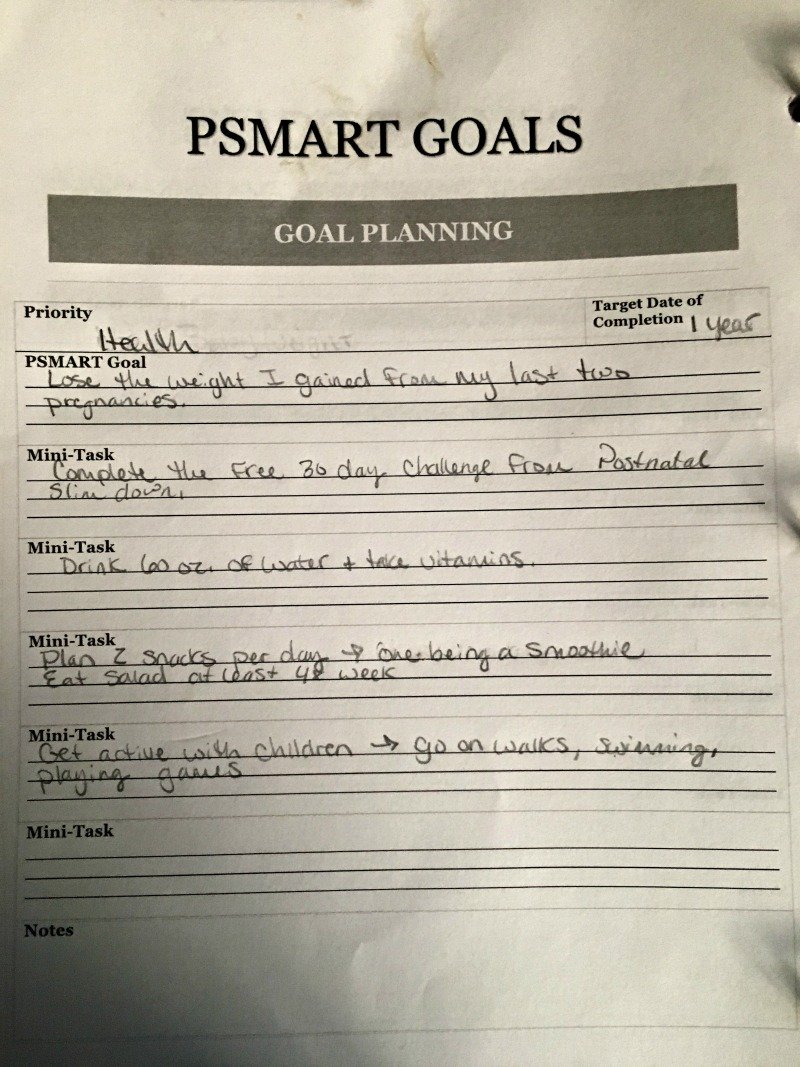 PSMART GOALS
GOAL PLANNING
Priority
Health
Target Date of
Completion 1 year
PSMART Goal
Lose the weight I gained from my last two
pregnancies.
Mini-Task
Complete the Free 30 day Challenge from Postnatal
Slim down.
Mini-Task
Drink 60 oz. of water + take vitamins.
Mini-Task
Plan 2 snacks per day → One being a smoothie
Eat Salad at least 4x week
Mini-Task
Get active with children → go on walks, swimming,
playing games
Mini-Task
Notes